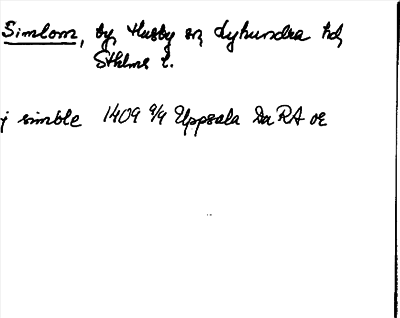 Simlom, by, Husby sn, Lyhundra hd,
Sthlms l.
j simble 1409 9/9 Uppsala Da RA or